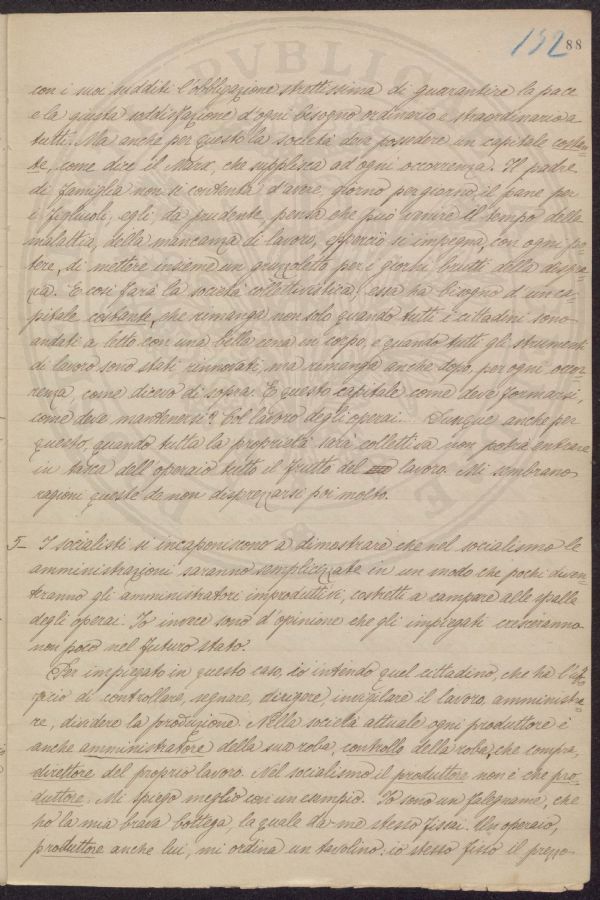 152 88
con i suoi sudditi l'obbligazione strettissima di guarantire la pace
e la giusta soddisfazione d'ogni bisogno ordinario e straordinario a
tutti. Ma anche per questo la società deve possedere un capitale costan-
te, come dice il Marx, che supplisca ad ogni occorrenza. Il padre
di famiglia non si contenta d'avere giorno per giorno il pane per
i figliuoli, egli, da prudente, pensa che può venire il tempo della
malattia, della mancanza di lavoro, epperciò si impegna, con ogni po-
tere, di mettere insieme un gruzzoletto per i giorni brutti della disgra-
zia. E così farà la società collettivistica; essa ha bisogno d'un ca-
pitale costante, che rimanga non solo quando tutti i cittadini sono
andati a letto con una bella cena in corpo, e quando tutti gli strumenti
di lavoro sono stati rinnovati, ma rimanga anche dopo, per ogni occor-
renza, come dicevo di sopra. E questo capitale come deve formarsi,
come deve mantenersi? Col lavoro degli operai... Dunque anche per
questo, quando tutta la proprietà sarà collettiva non potrà entrare
in tasca dell'operaio tutto il frutto del lavoro. Mi sembrano
ragioni queste da non disprezzarsi poi molto.
5– I socialisti si incaponiscono a dimostrare che nel socialismo le
amministrazioni saranno semplicizzate in un modo che pochi diven-
teranno gli amministratori improduttivi, costretti a campare alle spalle
degli operai. Io invece sono d'opinione che gli impiegati cresceranno
non poco nel futuro stato.
Per impiegato in questo caso, io intendo quel cittadino, che ha l'uf-
ficio di controllare, segnare, dirigere, invigilare il lavoro, amministra-
re, dividere la produzione. Nella società attuale ogni produttore è
anche amministratore della sua roba, controllo della roba, che compra,
direttore del proprio lavoro. Nel socialismo il produttore non è che pro-
duttore. Mi spiego meglio con un esempio. Io sono un falegname, che
ho la mia brava bottega, la quale da me stesso fissai. Un operaio,
produttore anche lui, mi ordina un tavolino; io stesso fisso il prezzo